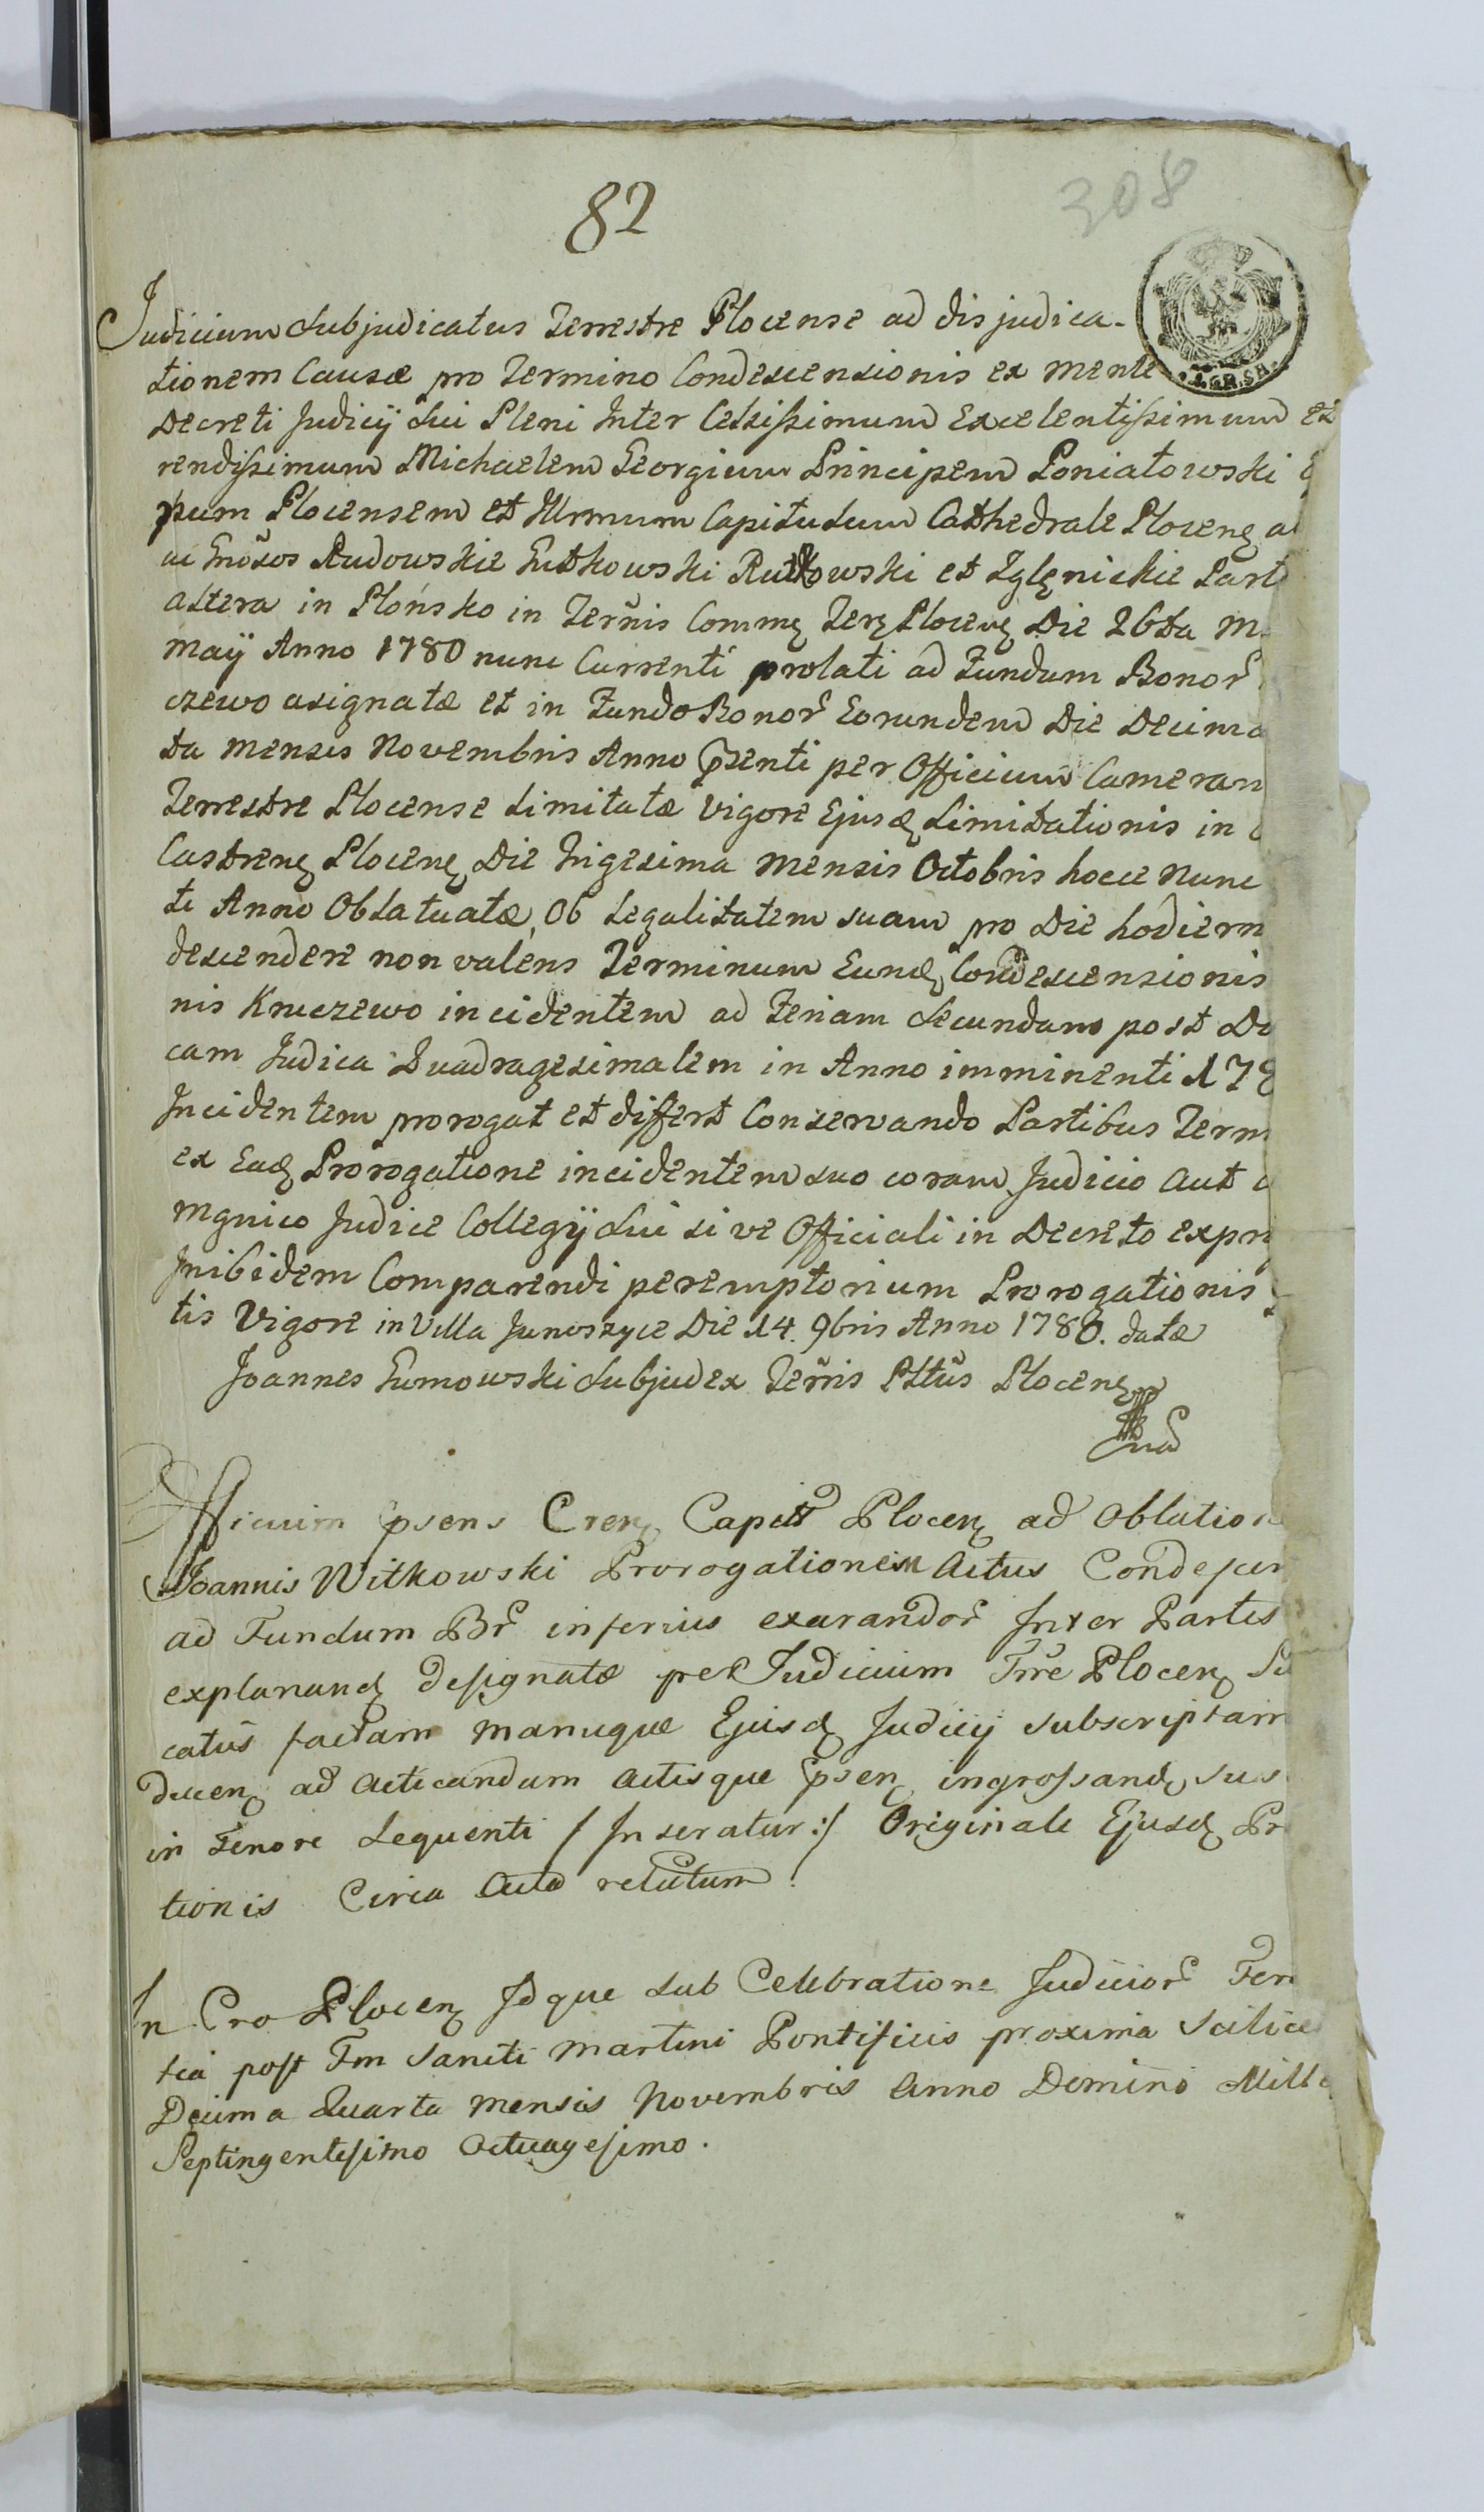 82
308
Judicium Subjudicatus Terrestre Plocense ad disjudica-
tionem Causæ pro Termino Condescensionis ex mente
Decreti Judicij Sui Pleni Inter Celsissimum Excelentissimum et
rendissimum Michaelem Georgium Principem Poniatowski
pum Plocensem et Illrmum Capitulum Cathedrale Plocenę
ac Gnõsos Rudowskie Gutkowski Rutkowski et Zglenickie Part
altera in Płońsko in Terr̃is Commę Terę Plocenę Die 26ta M
may Anno 1780 nunc Currenti prolati ad Fundum Bonor̃
czewo asignatæ et in Fundo Bonor̃ Eorundem Die Decima
ta mensis Novembris Anno P̃senti per Officium Cameran
Terrestre Plocense Limitatæ vigore Ejusđ Limitationis in
Castrenę Plocenę Die Trigesima mensis Octobris hocce Nunc
ti Anno Oblatuatæ, Ob Legalitatem suam pro Die hodiern
descendere non valens Terminum Eunđ Condescensionis
nis Kruczewo incidentem ad Feriam Secundam post Do
cam Judica Quadragesimalem in Anno imminenti 178
Incidentem prorogat et differt Conservando Partibus Term
ex Eađ Prorogatione incidentem suo coram Judicio aut
mgnico Judice Collegij Sui sive Officiali in Decreto expr
Inibidem Comparendi peremptorium Prorogationis
tis Vigore in Villa Junoszyce Die 14. 9bris Anno 1780. datæ
Joannes Gumowski Subjudex Terr̃is Pltũs Plocenę
Officium p̃sens Crenę Capitl̃ Plocenę ad Oblatione
Joannis Witkowski Prorogationem Actus Condescen
ad Fundum Br̃ inferius exarandor̃ Inter Partes
explananđ designatæ per Judicium Trr̃e Plocenę Su
catũs factam manuque Ejusđ Judicij subscriptam
ducenę ad acticandum actisque p̃senę ingrossanđ sus
in Tenore Sequenti /Inseratur:/ Originale Ejusđ Pr
tionis Circa Acta relictum.
In Cro Plocenę Idque sub Celebratione Judicior̃ Terr
tia post Fm Sancti Martini Pontificis proxima Scilicet
Decima Quarta mensis Novembris Anno Domino Mille
Septingentesimo Octuagesimo.